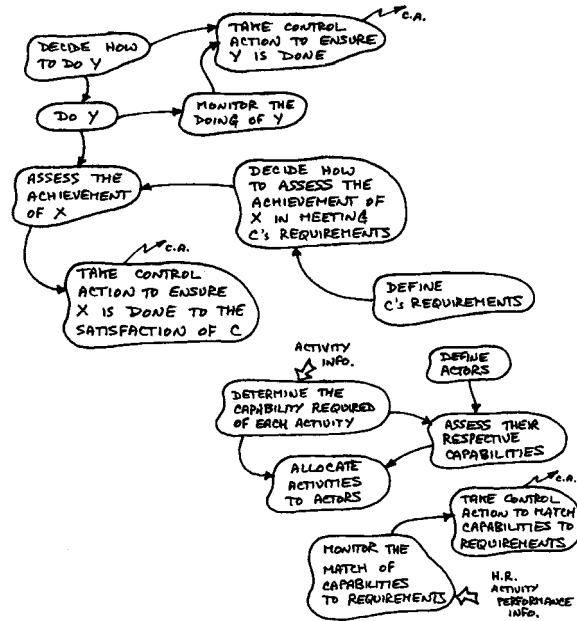 C.A.
DECIDE HOW
TO DO Y
TAKE CONTROL
ACTION TO ENSURE
Y IS DONE
DO Y
MONITOR THE
DOING OF Y
ASSESS THE
ACHIEVEMENT
OF X
DECIDE HOW
TO ASSESS THE
ACHIEVEMENT OF
X IN MEETING
C's REQUIREMENTS
C.A.
TAKE CONTROL
ACTION TO ENSURE
X IS DONE TO THE
SATISFACTION OF C
DEFINE
C's REQUIREMENTS
ACTIVITY
INFO.
DEFINE
ACTORS
DETERMINE THE
CAPABILITY REQUIRED
OF EACH ACTIVITY
ASSESS THEIR
RESPECTIVE
CAPABILITIES
ALLOCATE
ACTIVITIES
TO ACTORS
C.A.
TAKE CONTROL
ACTION TO MATCH
CAPABILITIES TO
REQUIREMENTS
MONITOR THE
MATCH OF
CAPABILITIES
TO REQUIREMENTS
H.R.
ACTIVITY
PERFORMANCE
INFO.